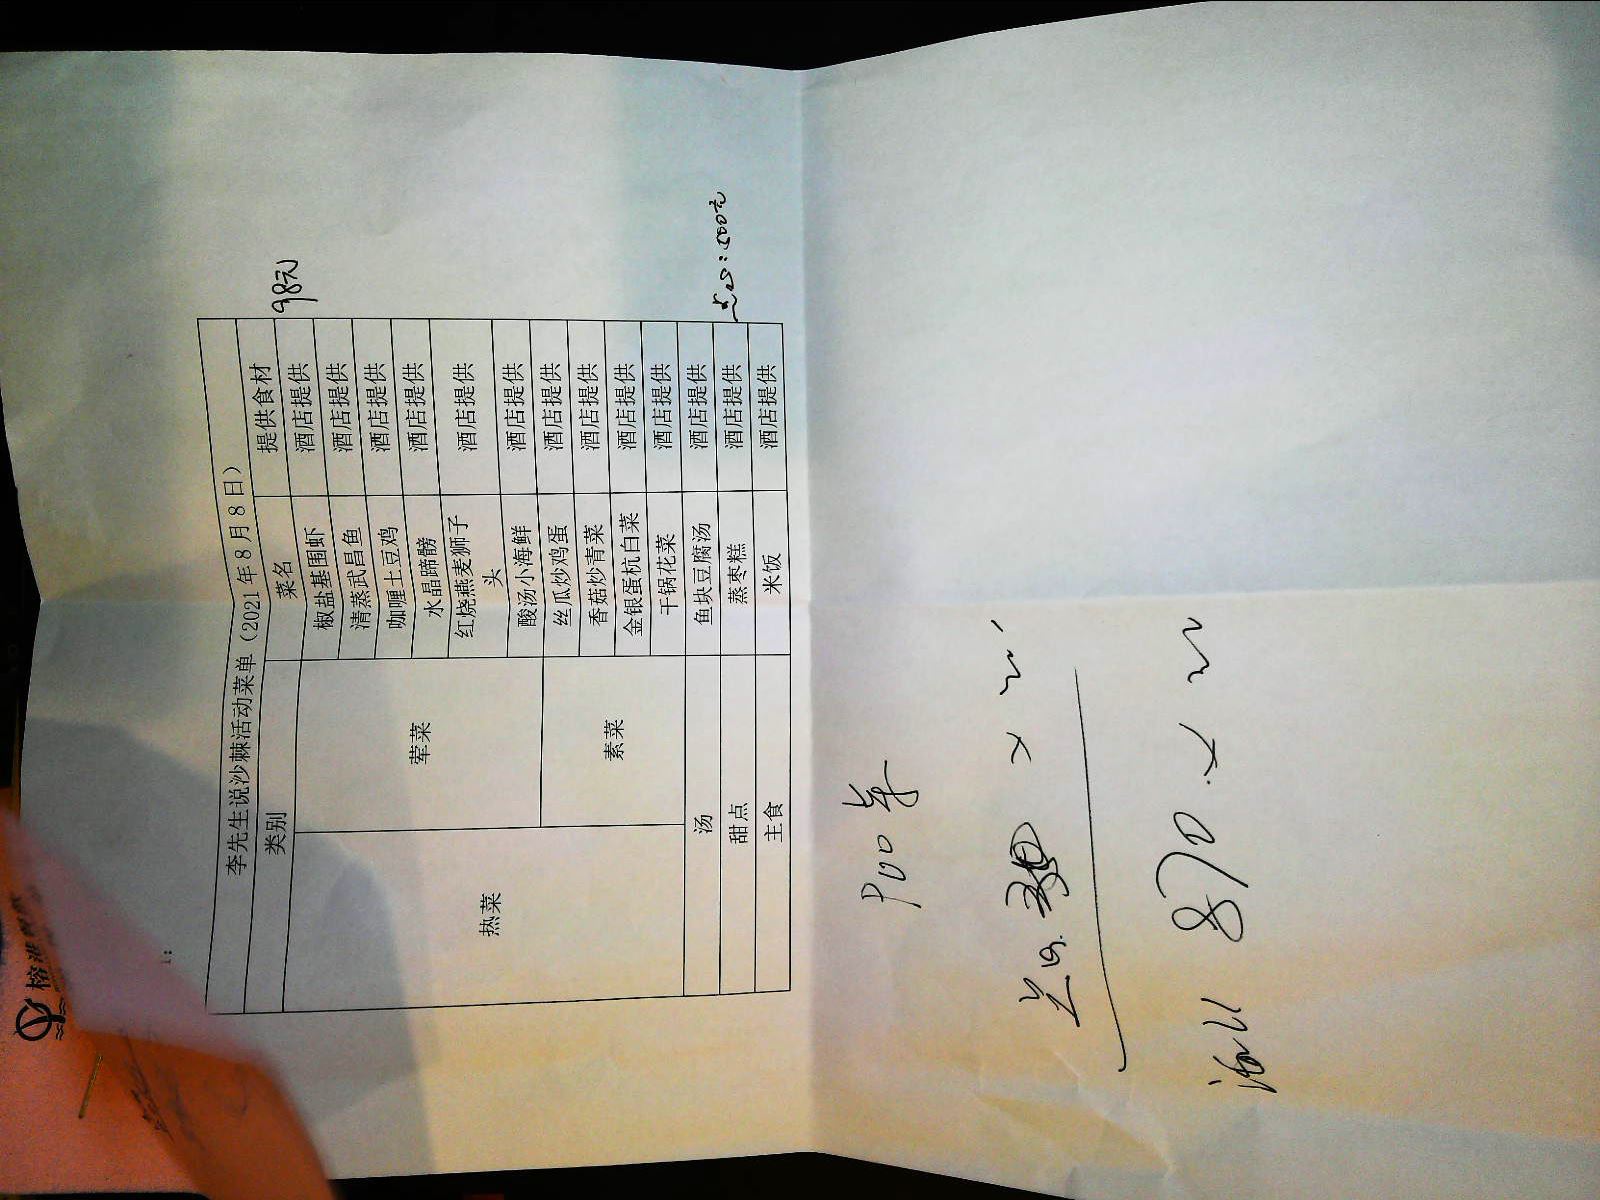 李先生说沙棘活动菜单（2021 年 8 月 8 日）
类别 菜名 提供食材
98元
热菜 荤菜 椒盐基围虾 酒店提供
清蒸武昌鱼 酒店提供
咖喱土豆鸡 酒店提供
水晶蹄髈 酒店提供
红烧燕麦狮子头 酒店提供
酸汤小海鲜 酒店提供
素菜 丝瓜炒鸡蛋 酒店提供
香菇炒青菜 酒店提供
金银蛋杭白菜 酒店提供
干锅花菜 酒店提供
汤 鱼块豆腐汤 酒店提供
甜点 蒸枣糕 酒店提供
点心：500元
主食 米饭 酒店提供
870